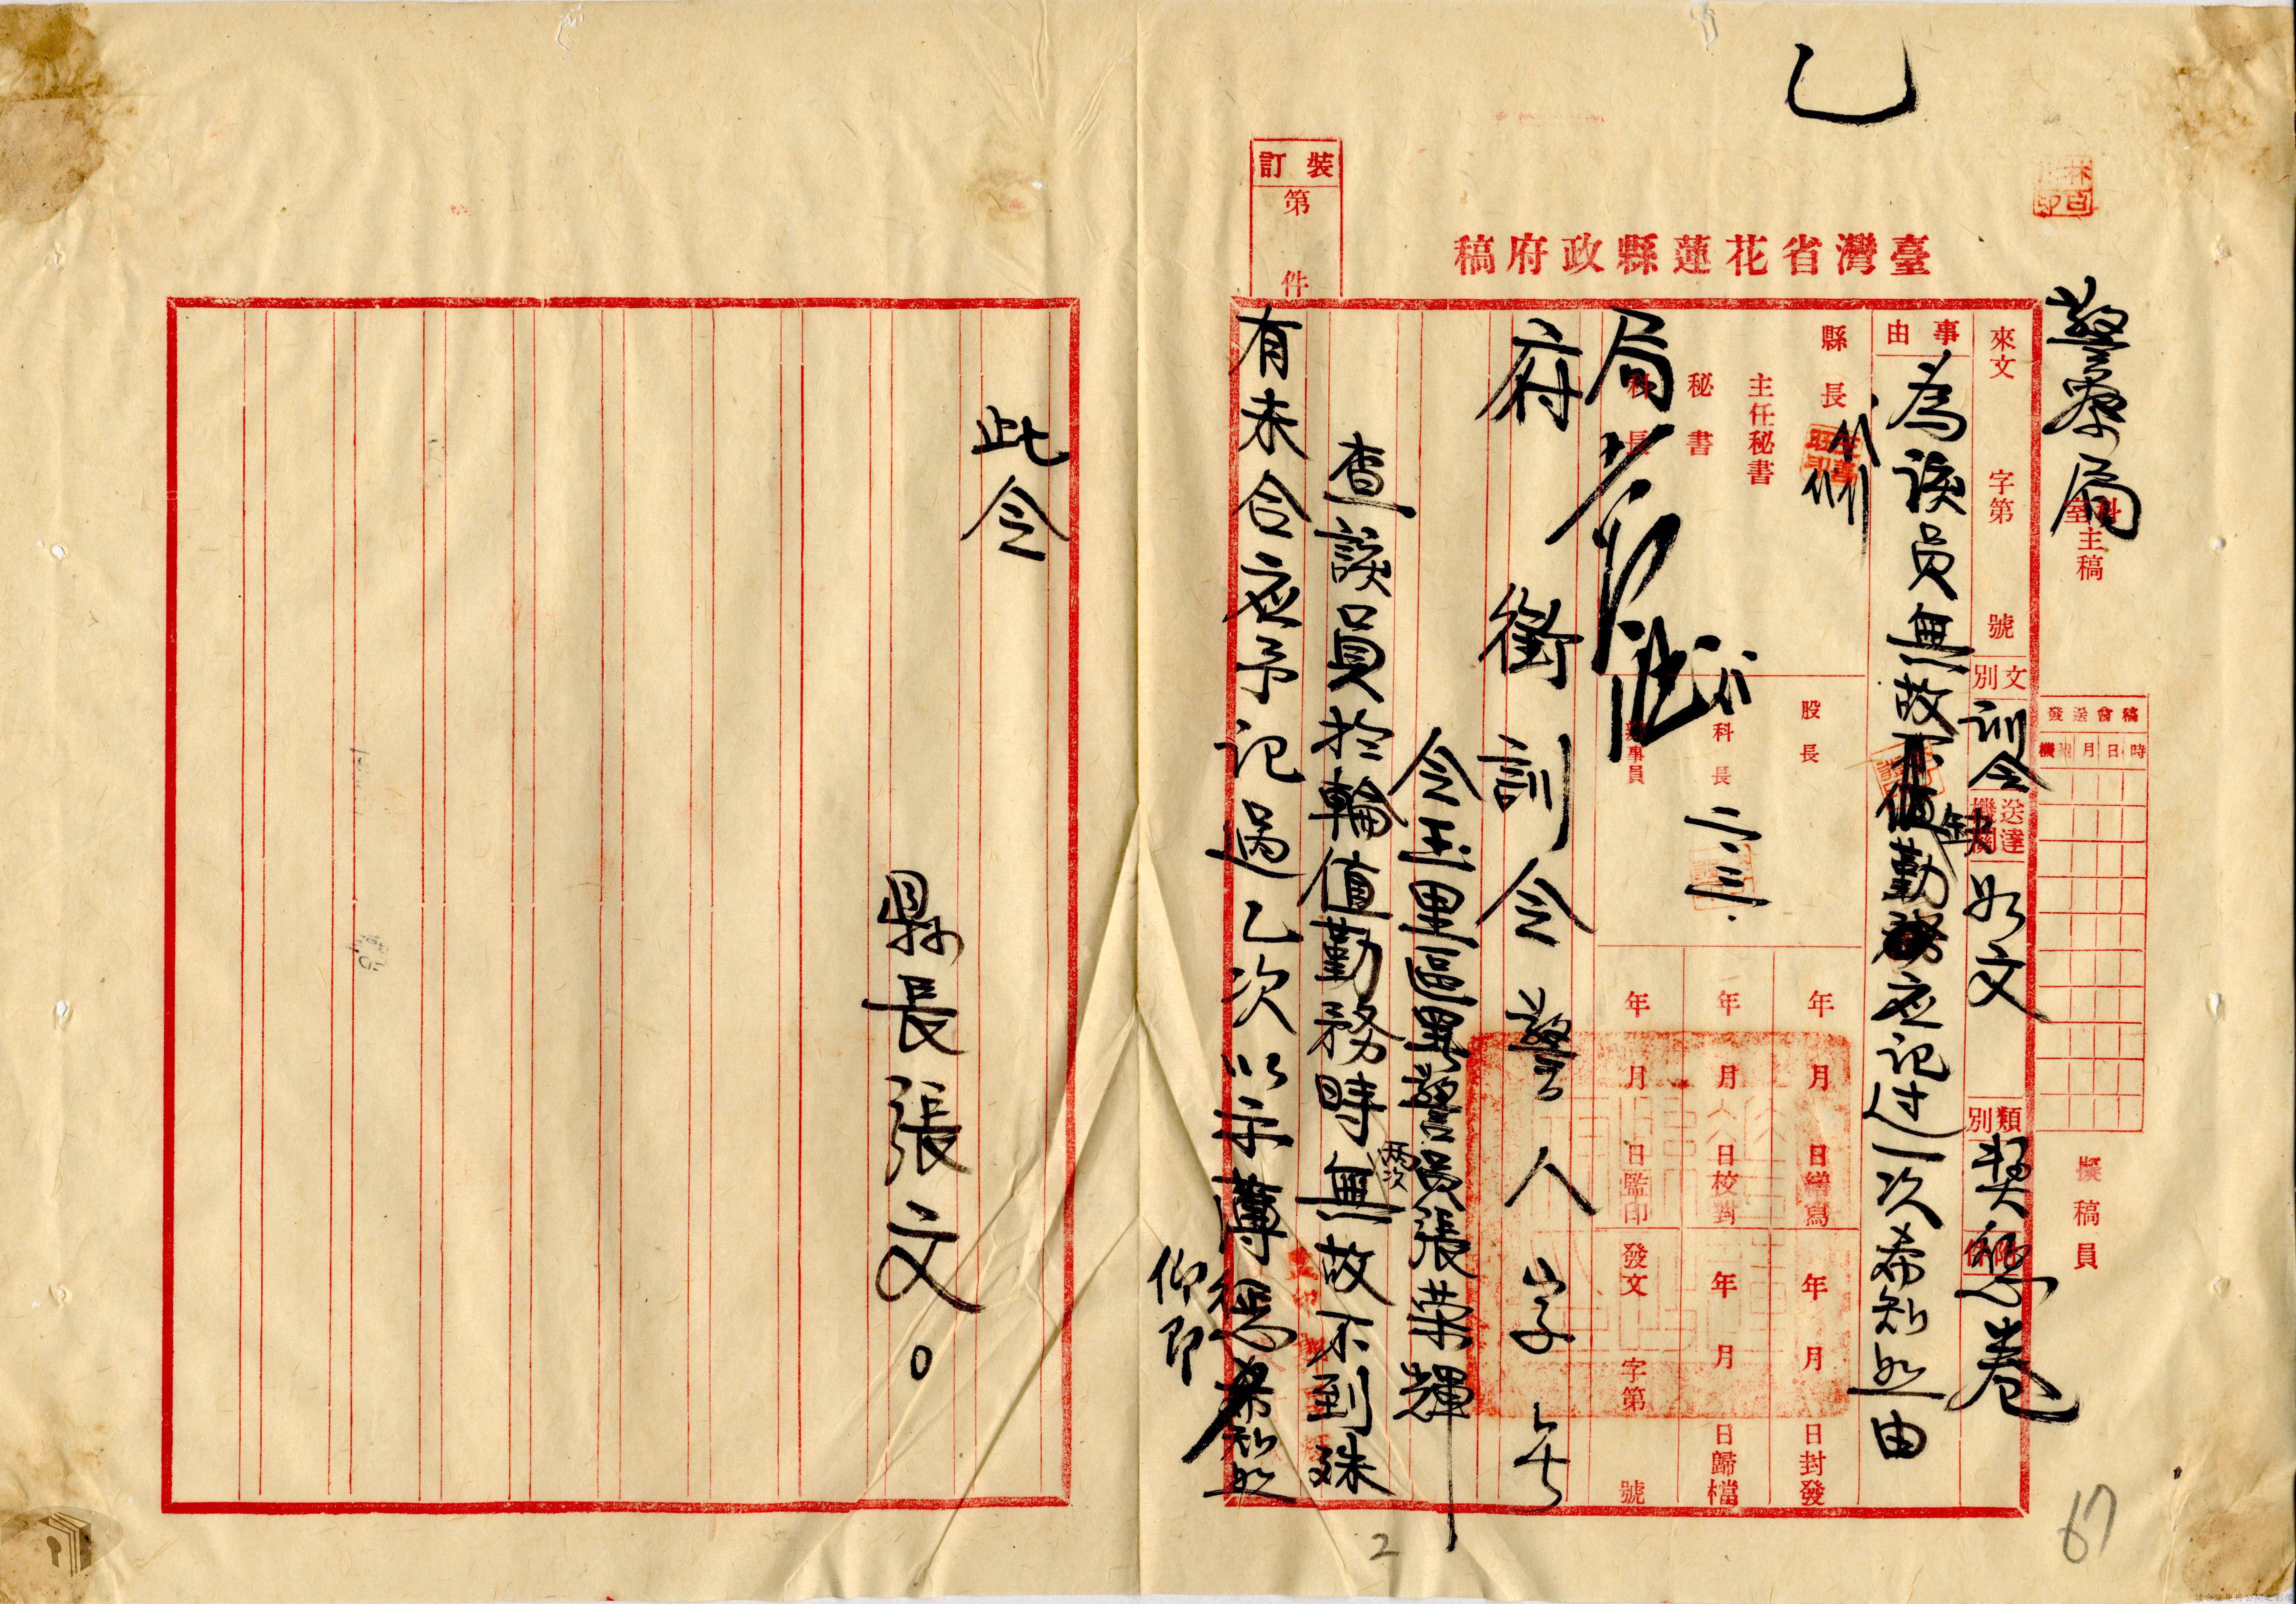 乙
臺灣省花蓮縣政府稿
裝訂
第 件
警察局
科室主稿
擬稿員
稿會送發
時日月機
來文 字第 號
文別 訓令
送達機關 如文
類別 獎懲卷
附件
事由
為該員無故缺勤應記过一次希知照由
縣長
主任秘書
秘書
科長
局
股長
科長
辦事員
年月日繕寫
年月日校對
年月日監印
年月日封發
年月日歸檔
發文 字第 號
府銜訓令 警人字第
令玉里區署警員張榮輝
查該員於輪值勤務時兩次無故不到殊
有未合应予記過乙次以示薄懲仰即知照
此令
縣長張文。
2
67